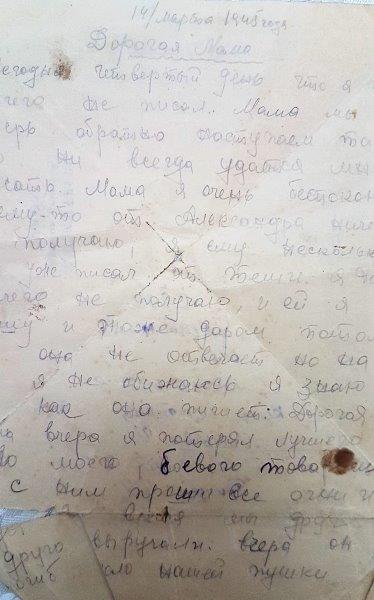 14/марта 1945 года
Дорогая Мама
егодня четвертый день что я
чего не писал. Мама мы
ерь обратно наступаем
не всегда удается мы
сать. Мама я очень беспоко
ему-то от Александра ниче
получаю, я ему несколь
уже писал. от Жени я
чего не получаю, и ей я
шу и даром
она не ответчает но на
я не обижаюсь я знаю
как она пишет. Дорогая
на вчера я потерял лучшего
моего, боевого това
с ним прошли все
мы друг
друга выручали. вчера он
огиб коло нашей пушки